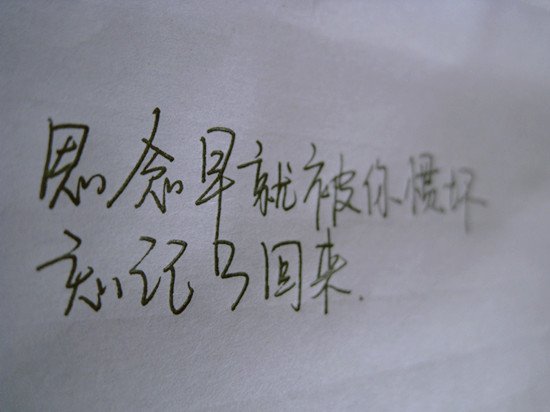 思念早就被你惯坏
忘记了回来.